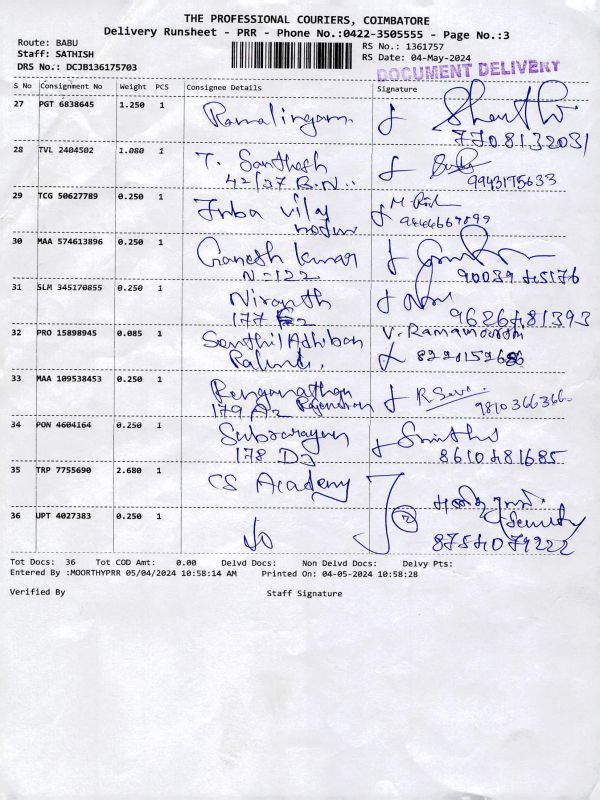 THE PROFESSIONAL COURIERS, COIMBATORE
Delivery Runsheet - PRR - Phone No.:0422-3505555 - Page No.:3
Route: BABU
Staff: SATHISH
DRS No.: DCJB136175703
RS No.: 1361757
RS Date: 04-May-2024
DOCUMENT DELIVERY
S No Consignment No Weight PCS Consignee Details Signature
27 PGT 6838645 1.250 1 Ramalingam
7708132031
28 TVL 2404502 1.080 1 T. Santhosh
42/37 B.N.. 9943175633
29 TCG 50627789 0.250 1 Inba vilas
30 MAA 574613896 0.250 1 Ganesh kumar
N-122 9003945176
31 SLM 345170855 0.250 1 Niranth
177 9626481393
32 PRO 15898945 0.085 1 Senthil Adhiban V. Ramamoorthi
33 MAA 109538453 0.250 1 Renganathan
179 A2
34 PON 4604164 0.250 1 Subbarayan
178 D2 8610481685
35 TRP 7755690 2.680 1 CS Academy
36 UPT 4027383 0.250 1 Security
8754079222
Tot Docs: 36 Tot COD Amt: 0.00 Delvd Docs: Non Delvd Docs: Delvy Pts:
Entered By :MOORTHYPRR 05/04/2024 10:58:14 AM Printed On: 04-05-2024 10:58:28
Verified By Staff Signature